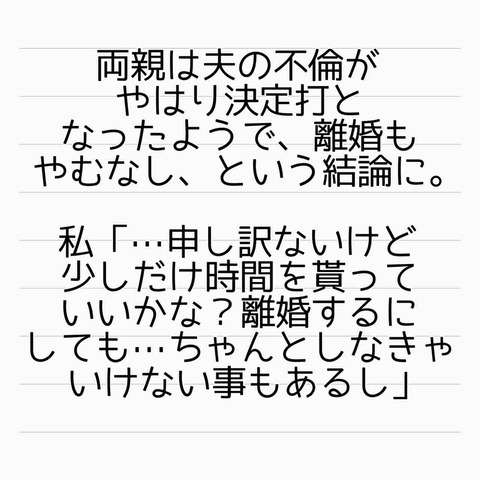 両親は夫の不倫が
やはり決定打と
なったようで、離婚も
やむなし、という結論に。
私「…申し訳ないけど
少しだけ時間を貰って
いいかな？離婚するに
しても…ちゃんとしなきゃ
いけない事もあるし」